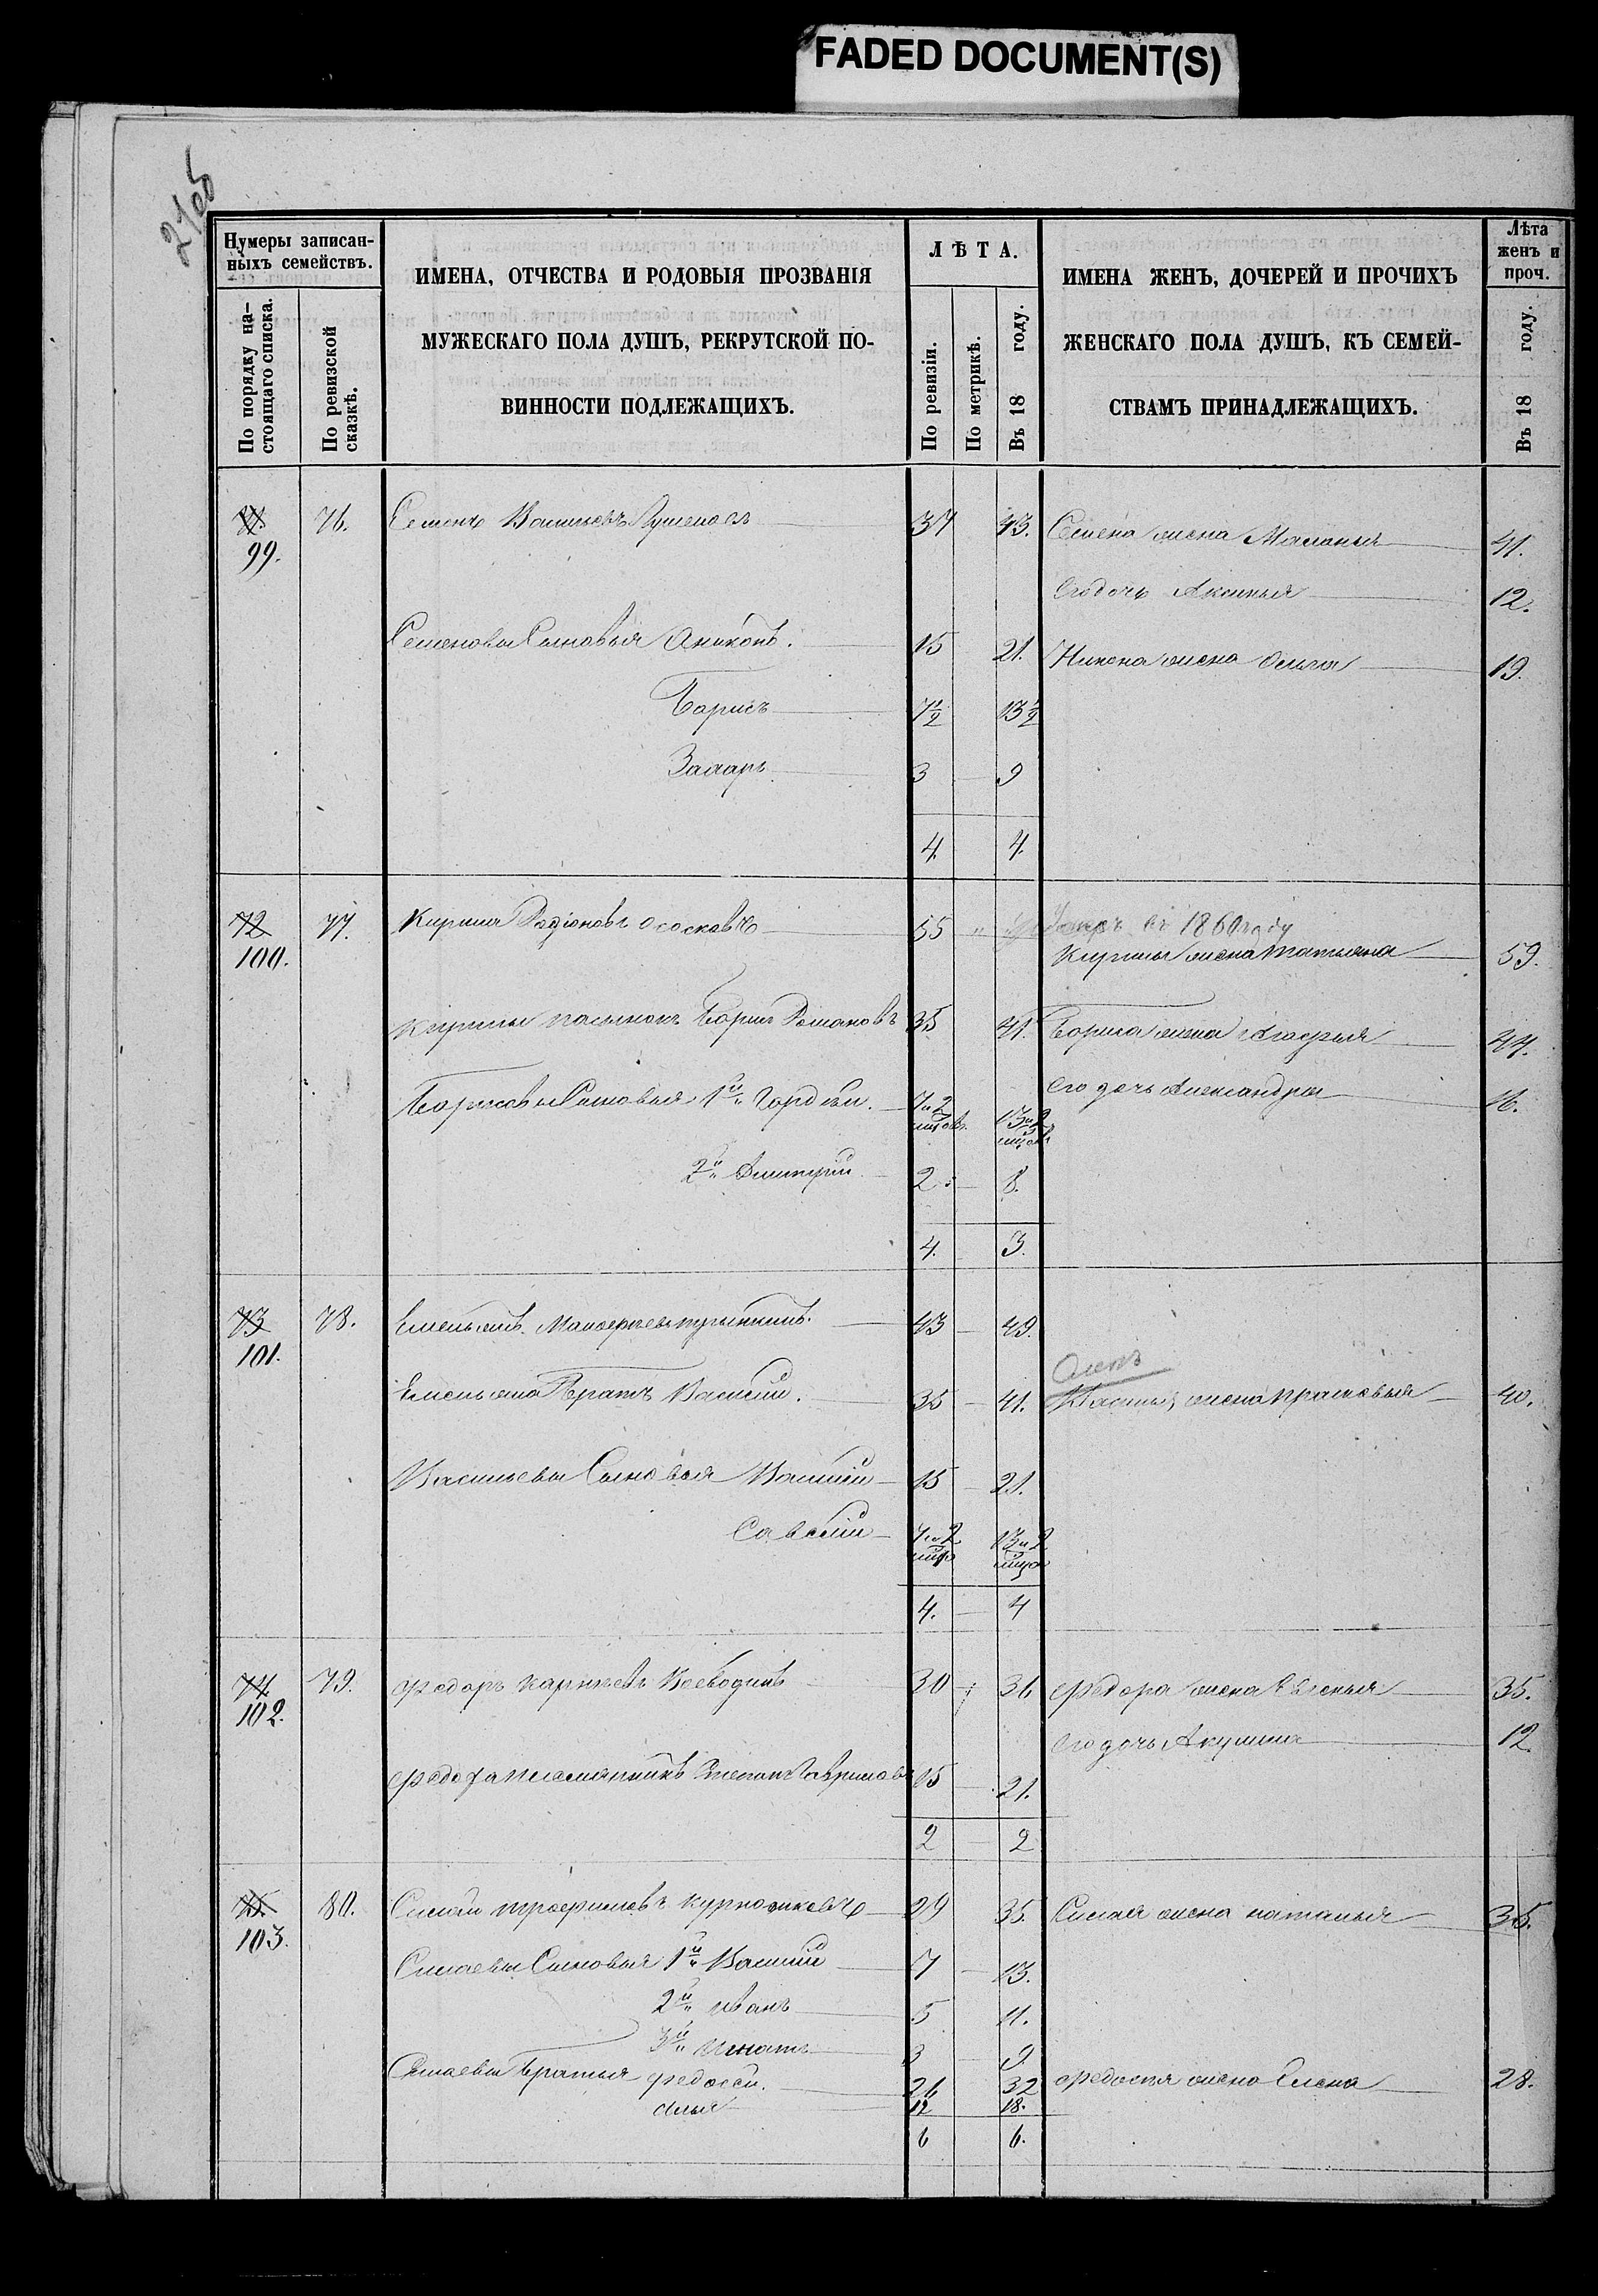 FADED DOCUMENT(S)
Нумеры записан-
ныхъ семействъ.
По порядку на-
стоящаго списка.
По ревизской
сказкѣ.
ИМЕНА, ОТЧЕСТВА И РОДОВЫЯ ПРОЗВАНІЯ
МУЖЕСКАГО ПОЛА ДУШЪ, РЕКРУТСКОЙ ПО-
ВИННОСТИ ПОДЛЕЖАЩИХЪ.
ЛѢТА.
По ревизіи.
По метрикѣ.
Въ 18 году.
ИМЕНА ЖЕНЪ, ДОЧЕРЕЙ И ПРОЧИХЪ
ЖЕНСКАГО ПОЛА ДУШЪ, КЪ СЕМЕЙ-
СТВАМЪ ПРИНАДЛЕЖАЩИХЪ.
Лѣта
женъ и
проч.
Въ 18 году.
71. 76. Семенъ Васильевъ 37 43. Семена жена Маланья 41.
99.
Его дочь Аксинья 12.
Семеновы Сыновья Аниконъ. 15 21. Никона жена Ольга 19.
Борисъ 7½ 13½
Захаръ 3 9
4. 4.
72 77. Кирила Родіоновъ Ососковъ 55 " Умеръ въ 1860 году
100. Кирилы жена Татьяна 59.
Кирилы пасынокъ Борисъ Романовъ 35 41. Бориса жена Агафья 44.
Борисовы Сыновья 1й Гордѣй. 7 и 2 13 и 2 Его дочь Александра 16.
2й Дмитрій 2 8.
4. 3.
73 78. Емельянъ 43 49.
101.
Емельяна Братъ Василій. 35 41. Василья жена Прасковья 40.
Васильевы Сыновья Василій 15 21.
Савелій 7 и 2 13 и 2
4. 4
74 79. Федоръ Карпѣевъ Воеводинъ 30 36 Федора жена Евгенья 35.
102.
Его дочь Акулина 12
Федора племянникъ Степанъ Гавриловъ 15 21.
2 2
75. 80. Силай Трофимовъ 29 35. Силая жена Наталья 36.
103.
Силаевы Сыновья 1й Василій 7 13.
2й Иванъ 5 11.
3й Игнатъ 3 9.
Силаевы Братья Федосей. 26 32 Федосея жена Елена 28.
Илья 12 18.
6 6.